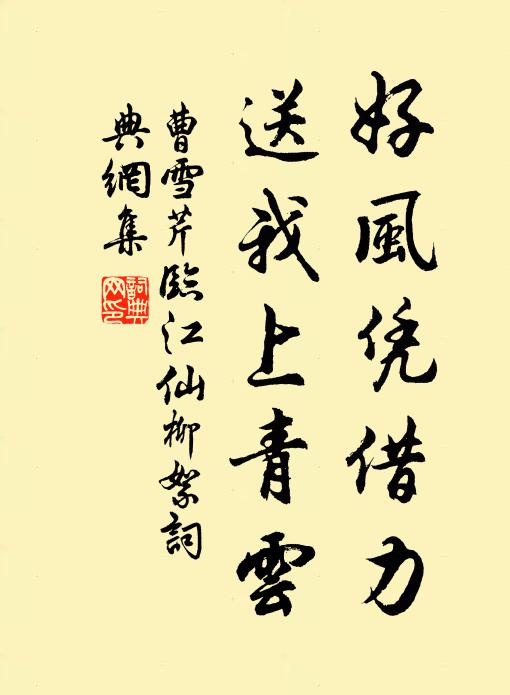 好風凭借力
送我上青雲
曹雪芹臨江仙柳絮詞
典網集
詞典
网印